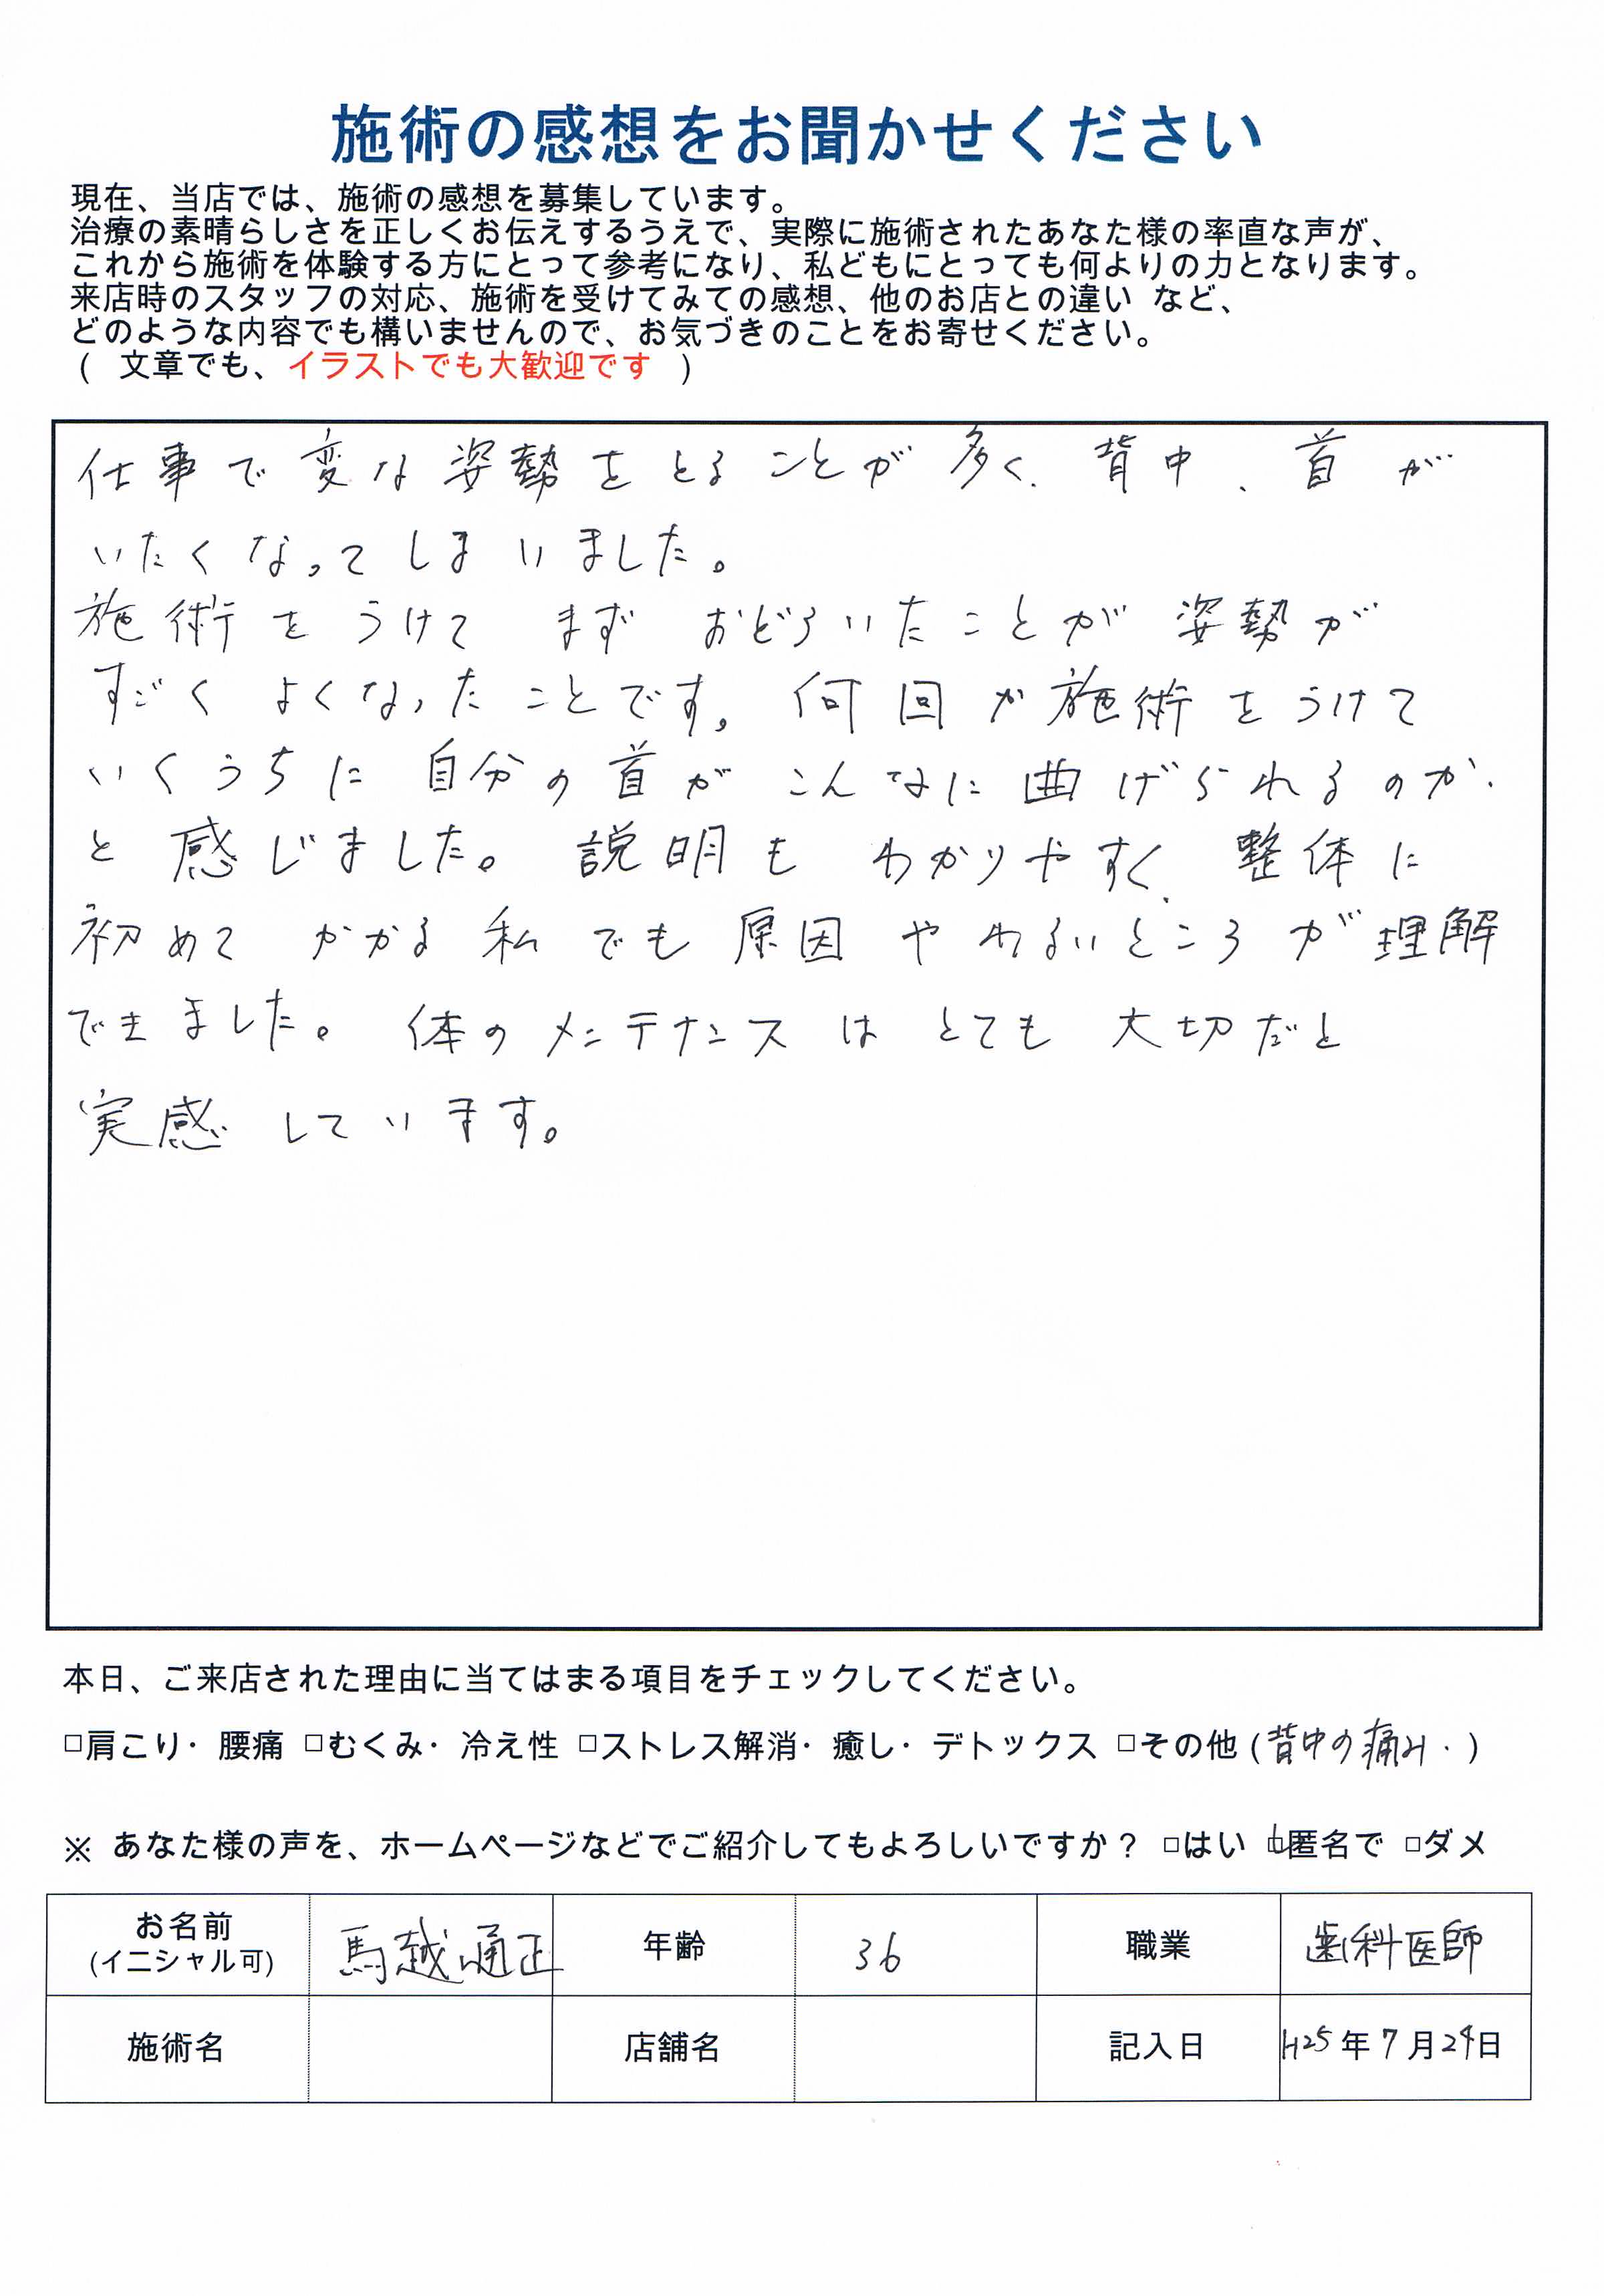 施術の感想をお聞かせください
現在、当店では、施術の感想を募集しています。
治療の素晴らしさを正しくお伝えするうえで、実際に施術されたあなた様の率直な声が、
これから施術を体験する方にとって参考になり、私どもにとっても何よりの力となります。
来店時のスタッフの対応、施術を受けてみての感想、他のお店との違い など、
どのような内容でも構いませんので、お気づきのことをお寄せください。
( 文章でも、イラストでも大歓迎です )
仕事で変な姿勢をとることが多く、背中、首が
いたくなってしまいました。
施術をうけて まず おどろいたことが 姿勢が
すごく よくなったことです。何回か施術をうけて
いくうちに 自分の首が こんなに曲げられるのか、
と感じました。説明も わかりやすく、整体に
初めて かかる私でも原因やわるいところが理解
できました。体のメンテナンスは とても 大切だと
実感しています。
本日、ご来店された理由に当てはまる項目をチェックしてください。
□肩こり・腰痛 □むくみ・冷え性 □ストレス解消・癒し・デトックス □その他(背中の痛み.)
※ あなた様の声を、ホームページなどでご紹介してもよろしいですか？ □はい □匿名で □ダメ
お名前 馬越通正 年齢 36 職業 歯科医師
(イニシャル可)
施術名 店舗名 記入日 H25年7月24日